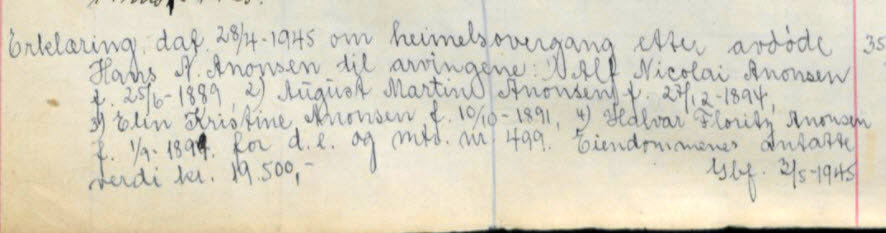 Erklæring, daf. 28/4-1945 om heimelsovergang etter avdøde 35
Hans N. Anonsen til arvingene: 1) Alf Nicolai Anonsen
f. 25/6-1889, 2) August Martin Anonsen f. 27/12-1894,
3) Elin Kristine Anonsen f. 10/10-1891, 4) Halvar Floritz Anonsen
f. 1/9-1899. for d. e. og mtr. nr. 499. Eiendommenes antatte
verdi kr. 19.500,- Gbf. 2/5-1945